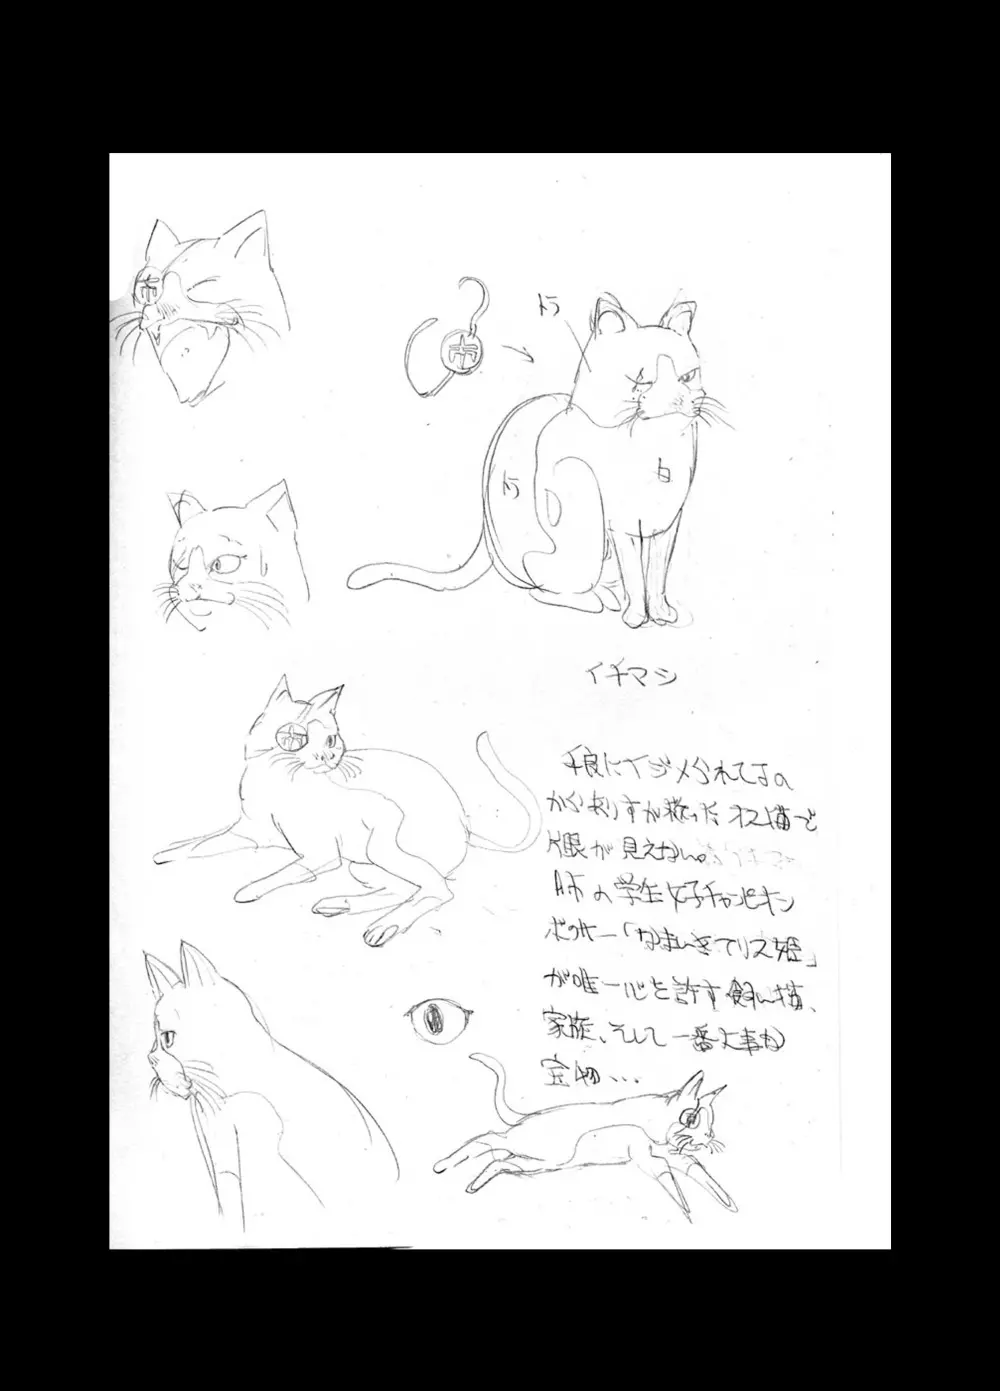 市
市
トラ
トラ
白
イチマシ
市
にイジメられてまの
かくまりすが拾ったオス猫で
片眼が見えない。
A市の学生女子チャンピオン
ボクサー「なまんきでリス姫」
が唯一心を許す飼い猫、
家族、そして一番大事な
宝物...